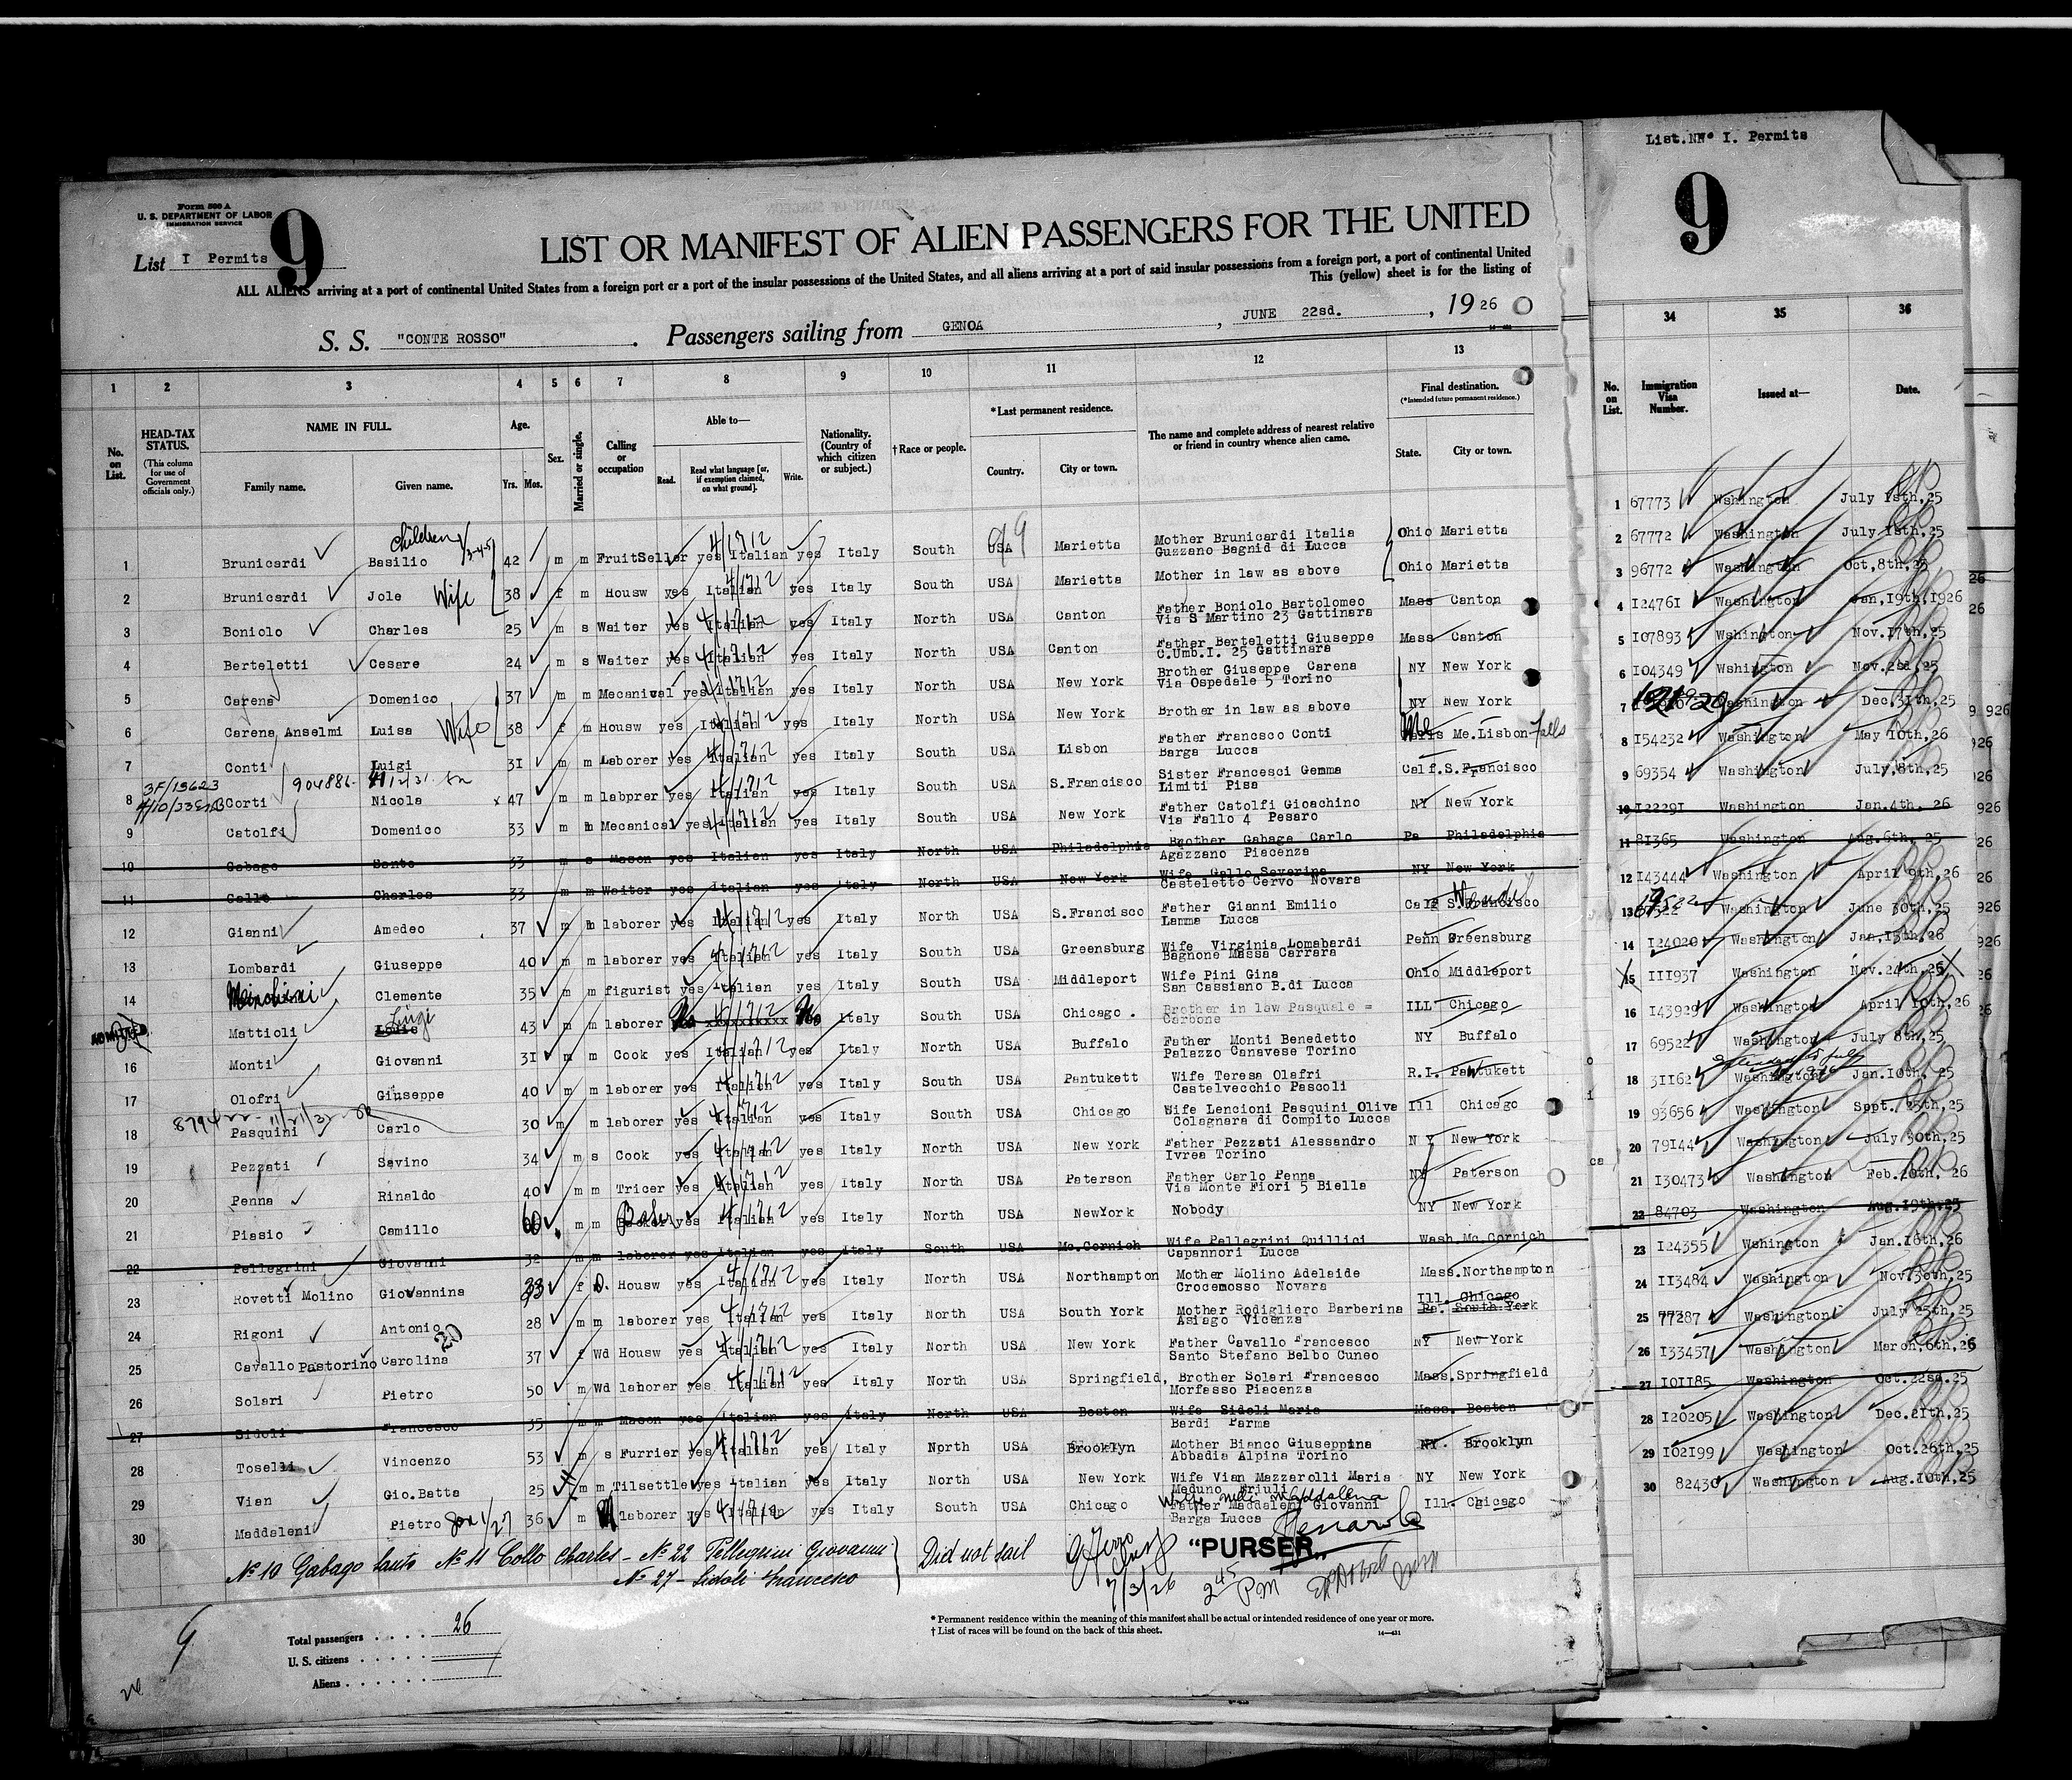 List.NNº I. Permits
9
Form 500 A
U. S. DEPARTMENT OF LABOR
IMMIGRATION SERVICE
9
List I Permits
LIST OR MANIFEST OF ALIEN PASSENGERS FOR THE UNITED
ALL ALIENS arriving at a port of continental United States from a foreign port or a port of the insular possessions of the United States, and all aliens arriving at a port of said insular possessions from a foreign port, a port of continental United
This (yellow) sheet is for the listing of
S. S. "CONTE ROSSO". Passengers sailing from GENOA, JUNE 22sd., 1926
1 2 3 4 5 6 7 8 9 10 11 12 13 34 35 36
No. on List. HEAD-TAX STATUS. (This column for use of Government officials only.) NAME IN FULL. Family name. Given name. Age. Yrs. Mos. Sex. Married or single. Calling or occupation Able to— Read. Read what language [or, if exemption claimed, on what ground]. Write. Nationality. (Country of which citizen or subject.) †Race or people. *Last permanent residence. Country. City or town. The name and complete address of nearest relative or friend in country whence alien came. Final destination. (*Intended future permanent residence.) State. City or town.
No. on List. Immigration Visa Number. Issued at— Date.
children
1 Brunicardi Basilio 42 m m FruitSeller yes Italian yes Italy South USA Marietta Mother Brunicardi Italia Guzzano Bagnid di Lucca Ohio Marietta
2 Brunicardi Jole Wife 38 f m Housw yes Italian yes Italy South USA Marietta Mother in law as above Ohio Marietta
3 Boniolo Charles 25 m s Waiter yes Italian yes Italy North USA Canton Father Boniolo Bartolomeo Via S Martino 23 Gattinara Mass Canton
4 Berteletti Cesare 24 m s Waiter yes Italian yes Italy North USA Canton Father Berteletti Giuseppe C.Umb.I. 25 Gattinara Mass Canton
5 Carena Domenico 37 m m Mecanical yes Italian yes Italy North USA New York Brother Giuseppe Carena Via Ospedale 5 Torino NY New York
6 Carena Anselmi Luisa Wife 38 f m Housw yes Italian yes Italy North USA New York Brother in law as above NY New York
7 Conti Luigi 31 m m Laborer yes Italian yes Italy South USA Lisbon Father Francsco Conti Barga Lucca Me Me.Lisbon Falls
3F/13623 904886
8 Corti Nicola 47 m m labprer yes Italian yes Italy South USA S.Francisco Sister Francesci Gemma Limiti Pisa Calf.S.Francisco
9 Catolfi Domenico 33 m m Mecanical yes Italian yes Italy South USA New York Father Catolfi Gioachino Via Fallo 4 Pesaro NY New York
10 Gabago Sante 33 m s Mason yes Italian yes Italy North USA Philadelphia Brother Gabaga Carlo Agazzano Piacenza Pa Philadelphia
11 Gallo Charles 33 m m Waiter yes Italian yes Italy North USA New York Wife Gallo Severina Casteletto Cervo Novara NY New York
12 Gianni Amedeo 37 m m laborer yes Italian yes Italy North USA S.Francisco Father Gianni Emilio Lamma Lucca Calf S.Francisco
13 Lombardi Giuseppe 40 m m laborer yes Italian yes Italy South USA Greensburg Wife Virginia Lomabardi Bagnone Massa Carrara Penn Greensburg
14 Clemente 35 m m figurist yes Italian yes Italy South USA Middleport Wife Pini Gina San Cassiano B.di Lucca Ohio Middleport
ADMITTED Mattioli Luigi 43 m m laborer No No Italy South USA Chicago. Brother in law Pasquale = Carbone ILL Chicago
16 Monti Giovanni 31 m m Cook yes Italian yes Italy North USA Buffalo Father Monti Benedetto Palazzo Canavese Torino NY Buffalo
17 Olofri Giuseppe 40 m m laborer yes Italian yes Italy South USA Pantukett Wife Teresa Olafri Castelvecchio Pascoli R.I. Pawtukett
18 Pasquini Carlo 30 m m laborer yes Italian yes Italy South USA Chicago Wife Lencioni Pasquini Oliva Colagnara di Compito Lucca Ill Chicago
19 Pezzati Savino 34 m s Cook yes Italian yes Italy North USA New York Father Pezzati Alessandro Ivrea Torino N Y New York
20 Penna Rinaldo 40 m m Tricer yes Italian yes Italy North USA Paterson Father Carlo Penna Via Monte Fiori 5 Biella NY Paterson
21 Piasio Camillo 60 m m Baker yes Italian yes Italy North USA NewYork Nobody NY New York
22 Pellegrini Giovanni 32 m m laborer yes Italian yes Italy South USA Mc.Cornich Wife Pellegrini Quillici Capannori Lucca Wash.Mc.Cornich
23 Rovetti Molino Giovannina 33 f D. Housw yes Italian yes Italy North USA Northampton Mother Molino Adelaide Crocemosso Novara Mass.Northampton
24 Rigoni Antonio 28 m m laborer yes Italian yes Italy North USA South York Mother Rodigliero Barberina Asiago Vicenza Ill. Chicago Pa. South York
25 Cavallo Pastorino Carolina 37 f Wd Housw yes Italian yes Italy North USA New York Father Cavallo Francesco Santo Stefano Belbo Cuneo NY New York
26 Solari Pietro 50 m Wd laborer yes Italian yes Italy North USA Springfield, Brother Solari Francesco Morfasso Piacenza Mass.Springfield
27 Sidoli Francesco 35 m m Mason yes Italian yes Italy North USA Boston Wife Sidoli Maria Bardi Parma Mass. Boston
28 Toselli Vincenzo 53 m s Furrier yes Italian yes Italy Nprth USA Brooklyn Mother Bianco Giuseppina Abbadia Alpina Torino NY. Brooklyn
29 Vian Gio.Batta 25 m m Tilsettle yes Italian yes Italy North USA New York Wife Vian Mazzarolli Maria Meduno Friuli NY New York
30 Maddaleni Pietro 36 m M laborer yes Italian yes Italy South USA Chicago Father Maddaleni Giovanni Barga Lucca Ill. Chicago
Nº 10 Gabago Santo Nº 11 Collo Charles – Nº 22 Pellegrini Giovanni
Nº 27 – Sidoli Francesco
Did not sail
"PURSER"
7/3/26 2 45 P.M
Total passengers . . . . 26
U. S. citizens . . . . .
Aliens . . . . . .
* Permanent residence within the meaning of this manifest shall be actual or intended residence of one year or more.
† List of races will be found on the back of this sheet.
14—431
1 67773 Wshington July 18th,25
2 67772 Washington July 18th,25
3 96772 Washington Oct,8th,25
4 124761 Washington Jan,19th,1926
5 107893 Wshington Nov.17th,25
6 104349 Wshington Nov.2sd,25
7 Washington Dec.31th,25
8 154232 Washington May 10th,26
9 69354 Washington July,8th,25
10 122291 Washington Jan.4th, 26
11 81365 Washington Aug.6th, 25
12 143444 Washington April 9th,26
13 Washington June 30th,25
14 124020 Washington Jan,15th,26
15 111937 Washington Nov.24th,25
16 143929 Washington April 10th,26
17 69522 Washington July 8th,25
18 31162 Washington Jan.10th, 25
19 93656 Washington Sppt. 25th,25
20 79144 Washington July 30th,25
21 130473 Washington Feb.20th, 26
22 84703 Washington Aug.19th.25
23 124355 Wshington Jan.16th,26
24 113484 Washington Nov.30th,25
25 77287 Washington July 25th,25
26 133457 Washington March,6th,26
27 101185 Washington Oct.22sd.25
28 120205 Washington Dec.21th,25
29 102199 Washington Oct.26th,25
30 82430 Washington Aug.10th,25